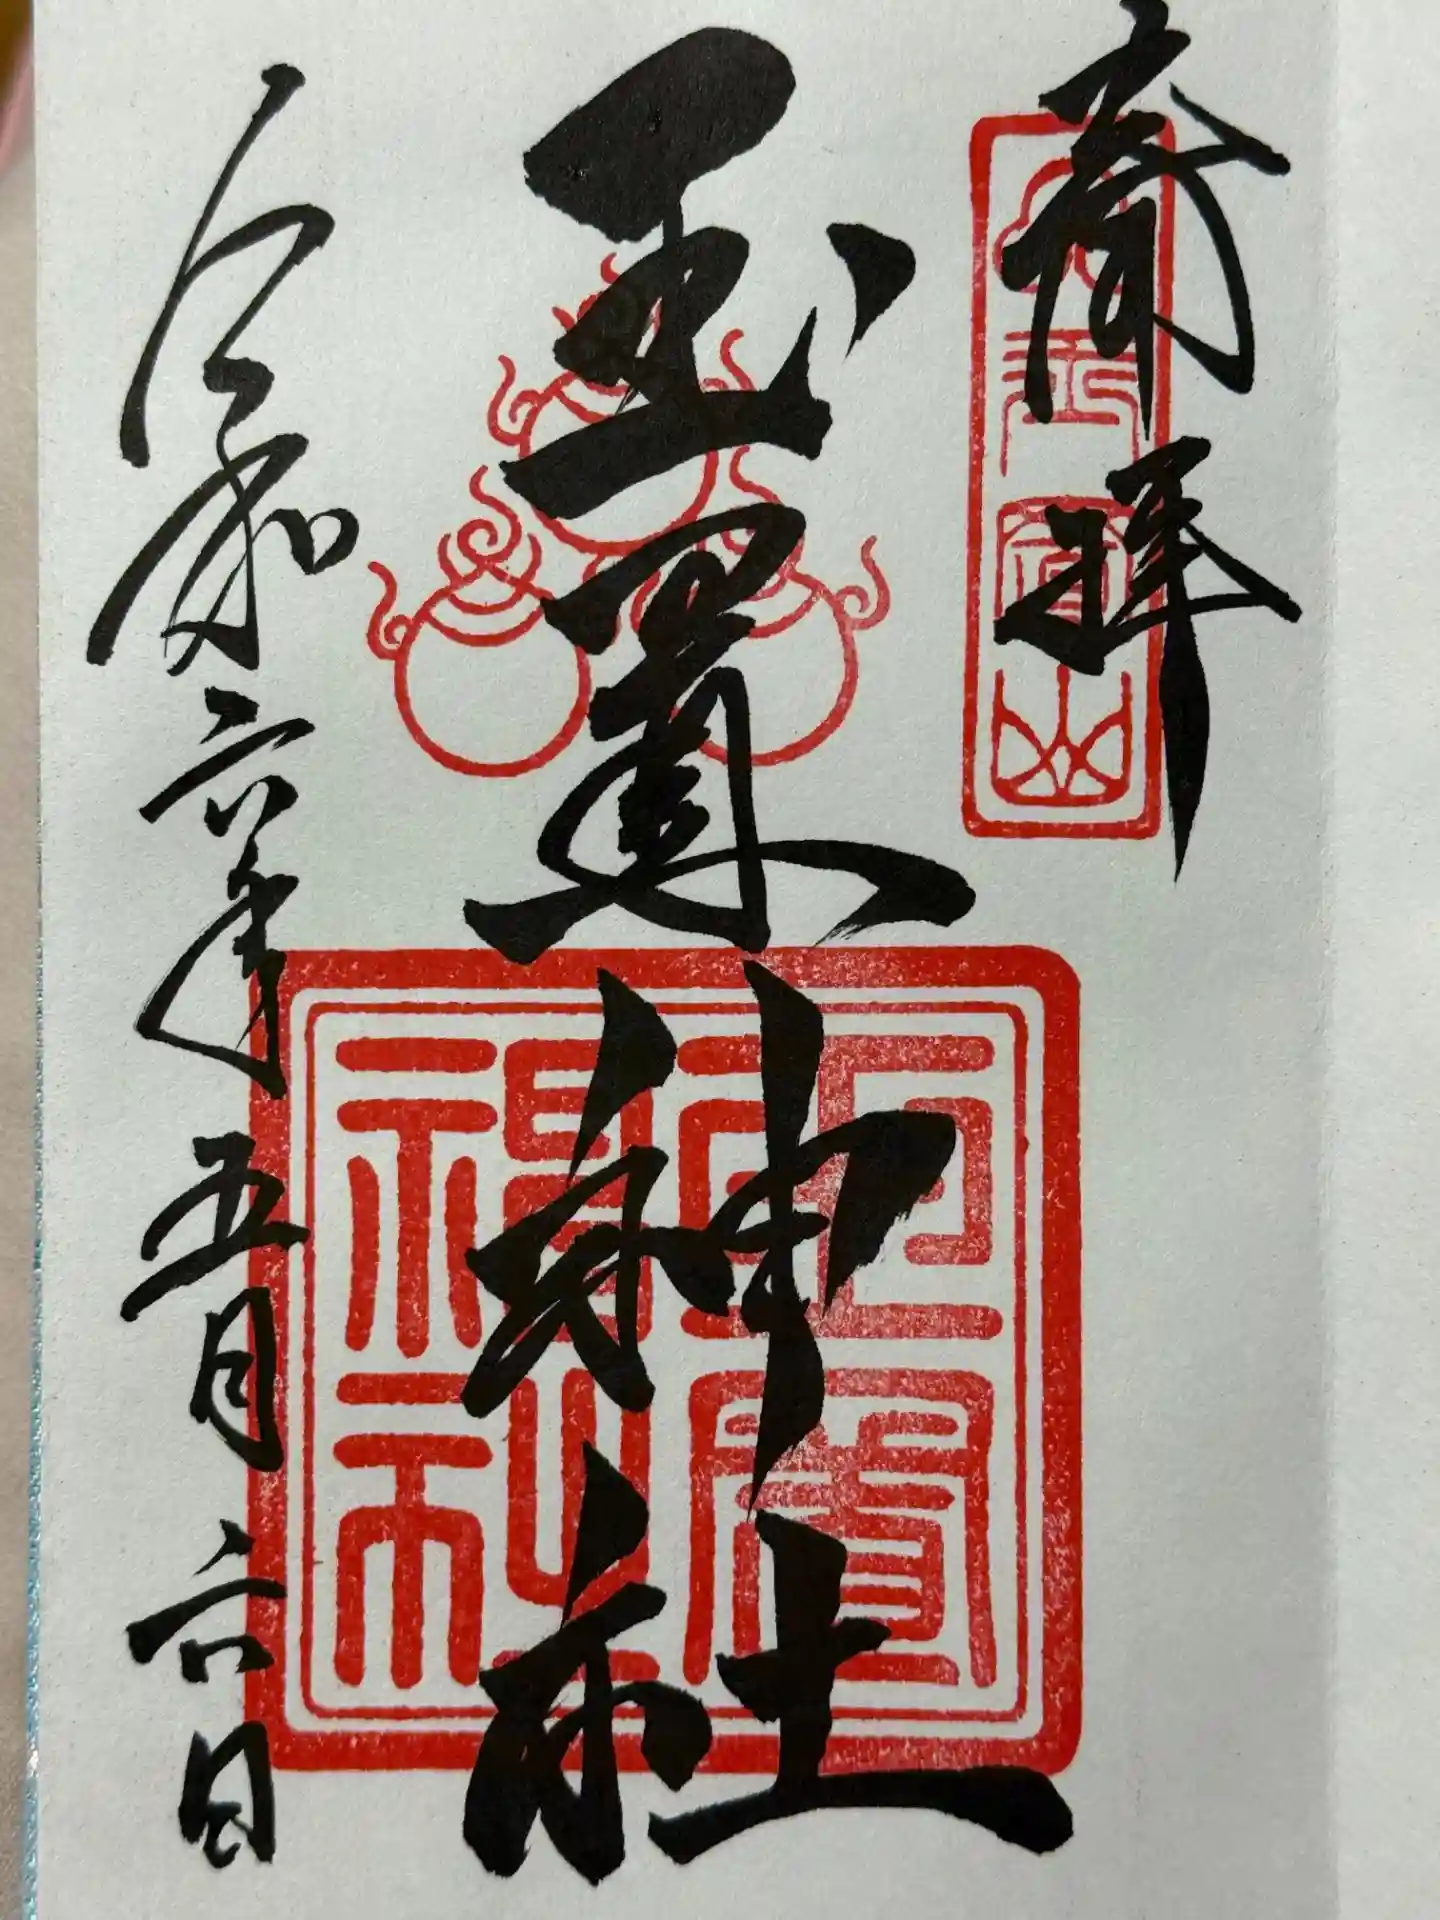 斎拝
玉置神社
令和六年五月六日
玉置
神社